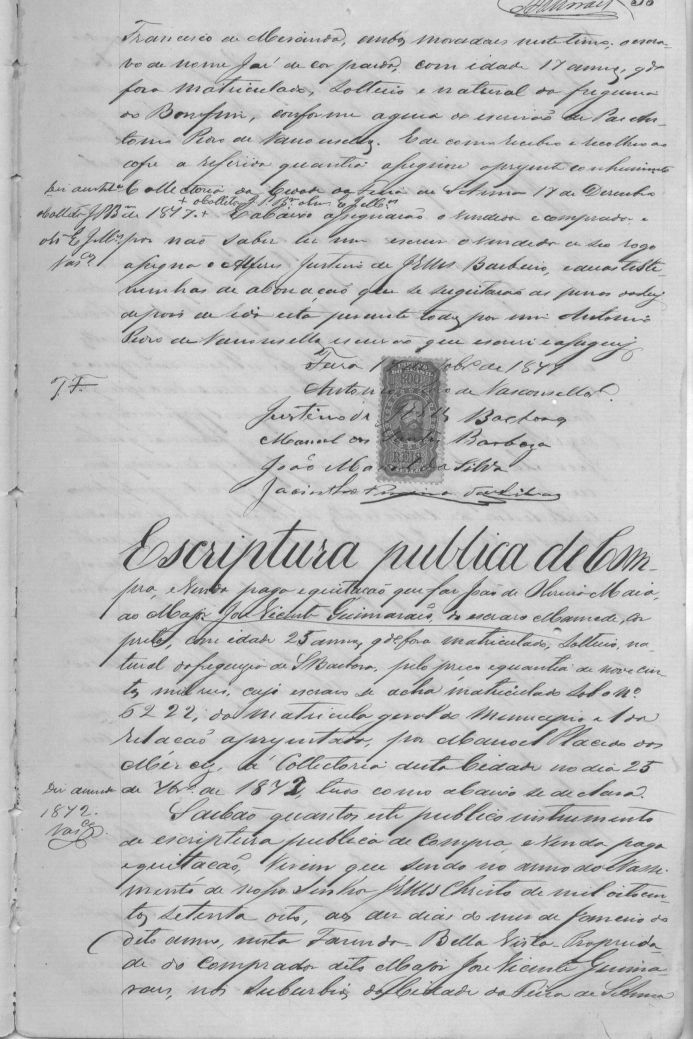 Francisco de Miranda, ambos moradores neste termo: o escra-
vo de nome José de cor parda, com idade 17 annos, q' ja
fora matriculado, solteiro e natural da freguesia
do Bomfim, conforme a guia do escrivão de Paz An-
tonio Pedro de Vasconcelloz. E de como recebeo e recolheo ao
cofre a referida quantia assignou o presente conhecimento
Collectoria da Cidade da Feira de S. Anna 17 de Dezembro
de 1877. + E abaixo assignarão o vendedor e comprador e
por não saber ler nem escrever o vendedor a seo rogo
assigna o Alferes Justino de JESUS Barboza, e duas teste
munhas de abonação que se sugeitarão as penas da Ley
depois de lida esta perante todoz por mim Antonio
Pedro de Vasconcellos escrivão que escrevi e assigney
Feira 1 de 1877
Antonio Pedro de Vasconsellos.
T. F.
Justino de Jesus Barboza
Manoel dos Santos Barboza
João Manoel da Silva
Jacintho Pereira da Silva
200
REIS
Escriptura publica de Com-
pra, e Venda paga e quitação que faz João de Oliveira Maia,
ao Major José Vicente Guimarães, do escravo Mamede, cor
preta, com idade 25 annos, q' ja fora matriculado, solteiro, na-
tural da freguezia de S. Barbora, pelo preço e quantia de nove cen-
tos mil reis, cujo escravo se acha matriculado sob o Nº.
6222, da matricula geral do Municipio e 1 da
relação aprezentada, por Manoel Placido das
Mercêz, á Collectoria desta Cidade no dia 25
de 7brº. de 1872, tudo como abaixo se declara.
1872.
Vasc.ᵒˢ
Saibão quantos este publico instrumento
de escriptura publica de compra, e venda paga
e quittação, Virem que sendo no anno do Nasci-
mento de Nosso Senhor JESUS Christo de mil oitocen-
tos setenta oito, aos dez dias do mes de Janeiro do
dito anno, nesta Fazenda Bella Vista Proprieda-
de do comprador dito Major José Vicente Guima
raes, nos Suburbioz da Cidade da Feira de S. Anna